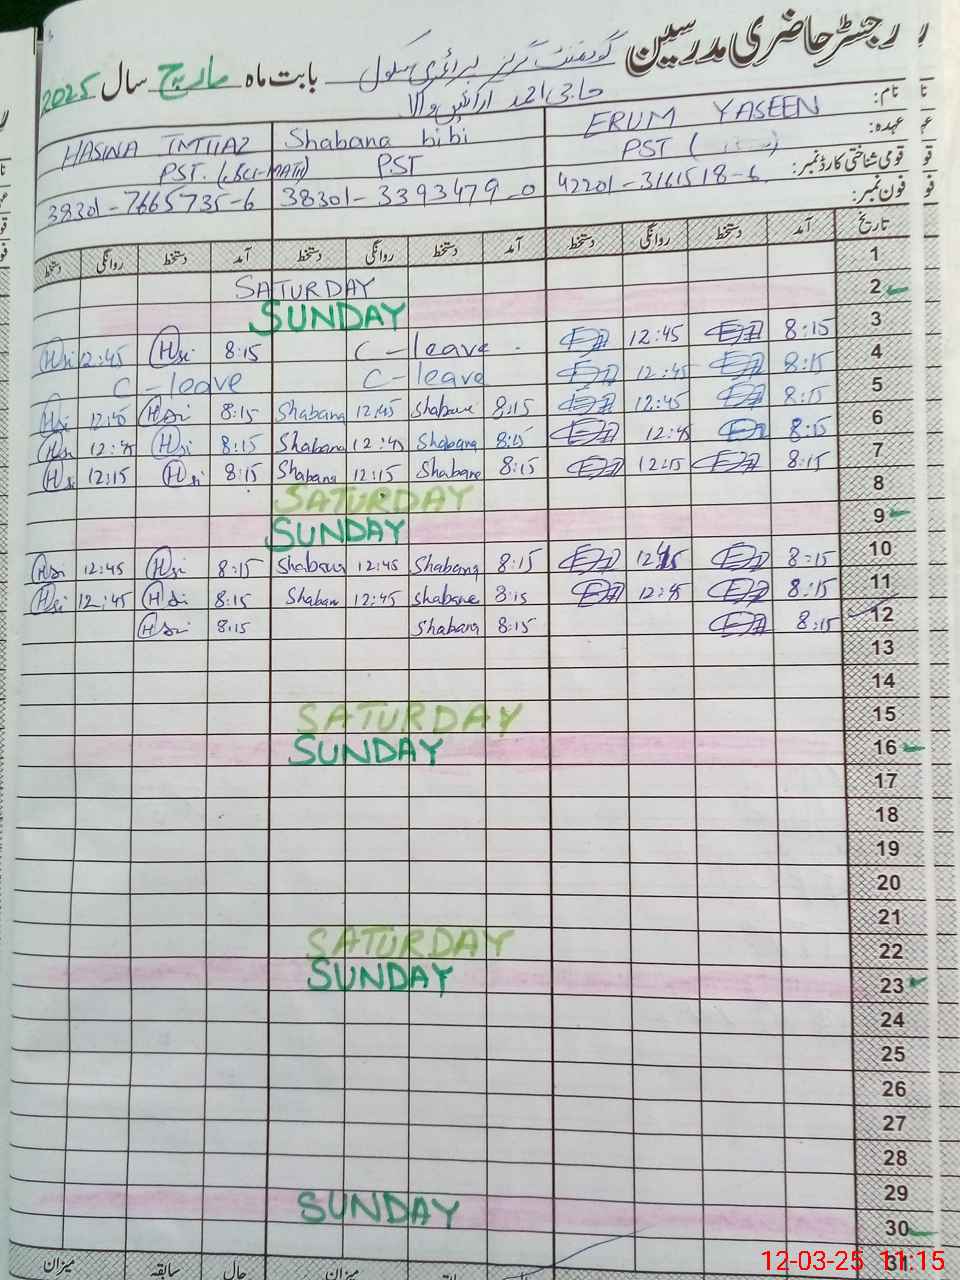 رجسٹر حاضری مدرسین گورنمنٹ گرلز پرائمری سکول بابت ماہ مارچ سال 2025
حاجی احمد ارائیں والا
نام: ERUM YASEEN Shabana bibi HASINA IMTIAZ
عہدہ: PST ( PST PST. (SCI-MATH)
قومی شناختی کارڈ نمبر: 42201-3161518-6 38301-3393479-0 38301-7665735-6
فون نمبر:
تاریخ آمد دستخط روانگی دستخط آمد دستخط روانگی دستخط آمد دستخط روانگی دستخط
1 SATURDAY
2 SUNDAY
3 8:15 12:45 C-leave 8:15 Hsi 12:45 Hsi
4 8:15 12:45 C-leave C-leave
5 8:15 12:45 8:15 Shabana 12:45 Shabana 8:15 Hsi 12:45 Hsi
6 8:15 12:45 8:15 Shabana 12:45 Shabana 8:15 Hsi 12:45 Hsi
7 8:15 12:15 8:15 Shabana 12:15 Shabana 8:15 Hsi 12:15 Hsi
8 SATURDAY
9 SUNDAY
10 8:15 12:45 8:15 Shabana 12:45 Shabana 8:15 Hsi 12:45 Hsi
11 8:15 12:45 8:15 Shabana 12:45 Shaban 8:15 Hsi 12:45 Hsi
12 8:15 8:15 Shabana 8:15 Hsi
13
14
15 SATURDAY
16 SUNDAY
17
18
19
20
21
22 SATURDAY
23 SUNDAY
24
25
26
27
28
29
30 SUNDAY
31
میزان حال سابقہ میزان
12-03-25 11:15